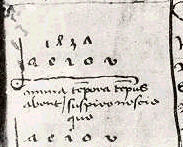 1437
a e i o v
omnia tēpora tēpus
abent / suspiro noscio
quo
a e i o v